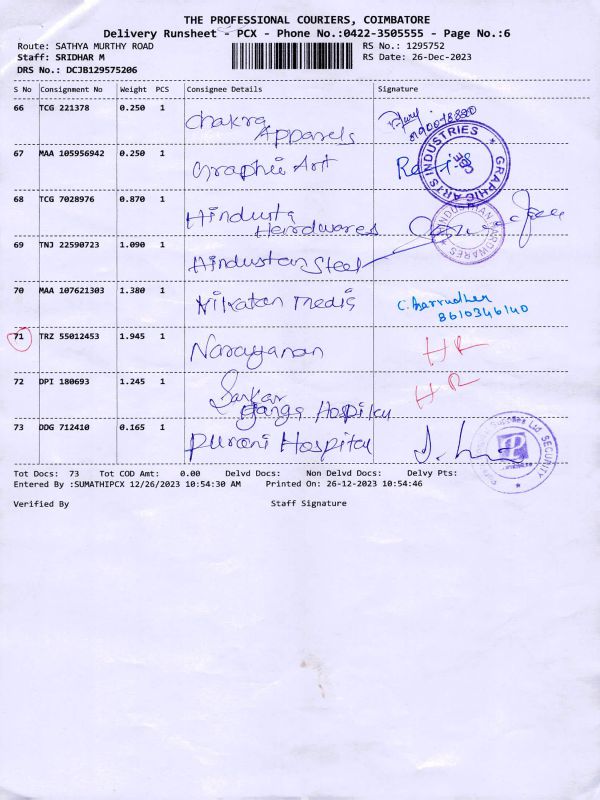 THE PROFESSIONAL COURIERS, COIMBATORE
Delivery Runsheet - PCX - Phone No.:0422-3505555 - Page No.:6
Route: SATHYA MURTHY ROAD RS No.: 1295752
Staff: SRIDHAR M RS Date: 26-Dec-2023
DRS No.: DCJB129575206
S No Consignment No Weight PCS Consignee Details Signature
66 TCG 221378 0.250 1 Chakra
Apparels
67 MAA 105956942 0.250 1 Graphic Art
GRAPHIC ARTS INDUSTRIES
CBE
68 TCG 7028976 0.870 1 Hindusta
Hardwares
HINDUSTAN HARDWARES
69 TNJ 22590723 1.090 1 Hindustan Steel
70 MAA 107621303 1.380 1 Nilkatan medis
8610346140
71 TRZ 55012453 1.945 1 Narayanan HR
72 DPI 180693 1.245 1 Sankar HR
Ganga Hospital
73 DDG 712410 0.165 1 Purani Hospital
Supplies Ltd SECURITY
Tot Docs: 73 Tot COD Amt: 0.00 Delvd Docs: Non Delvd Docs: Delvy Pts:
Entered By :SUMATHIPCX 12/26/2023 10:54:30 AM Printed On: 26-12-2023 10:54:46
Verified By Staff Signature